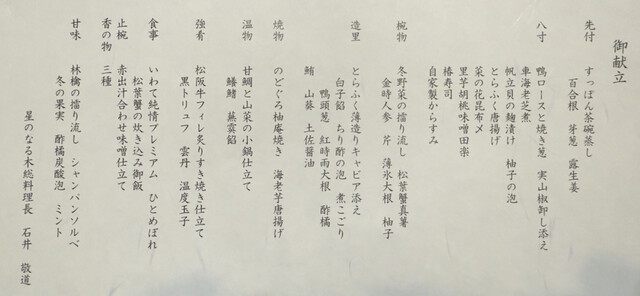 御献立
先付 すっぽん茶碗蒸し
百合根 芽葱 露生姜
八寸 鴨ロースと焼き葱 実山椒卸し添え
車海老芝煮
帆立貝の麹漬け 柚子の泡
とらふく唐揚げ
菜の花昆布〆
里芋胡桃味噌田楽
椿寿司
自家製からすみ
椀物 冬野菜の擂り流し 松葉蟹真薯
金時人参 芹 薄氷大根 柚子
造里 とらふく薄造りキャビア添え
白子餡 ちり酢の泡 煮こごり
鴨頭葱 紅時雨大根 酢橘
鮪 山葵 土佐醤油
焼物 のどぐろ柚庵焼き 海老芋唐揚げ
温物 甘鯛と山菜の小鍋仕立て
鱶鰭 蕪雲餡
強肴 松阪牛フィレ炙りすき焼き仕立て
黒トリュフ 雲丹 温度玉子
食事 いわて純情プレミアム ひとめぼれ
松葉蟹の炊き込み御飯
止椀 赤出汁合わせ味噌仕立て
香の物 三種
甘味 林檎の擂り流し シャンパンソルベ
冬の果実 酢橘炭酸泡 ミント
星のなる木総料理長 石井 敬道